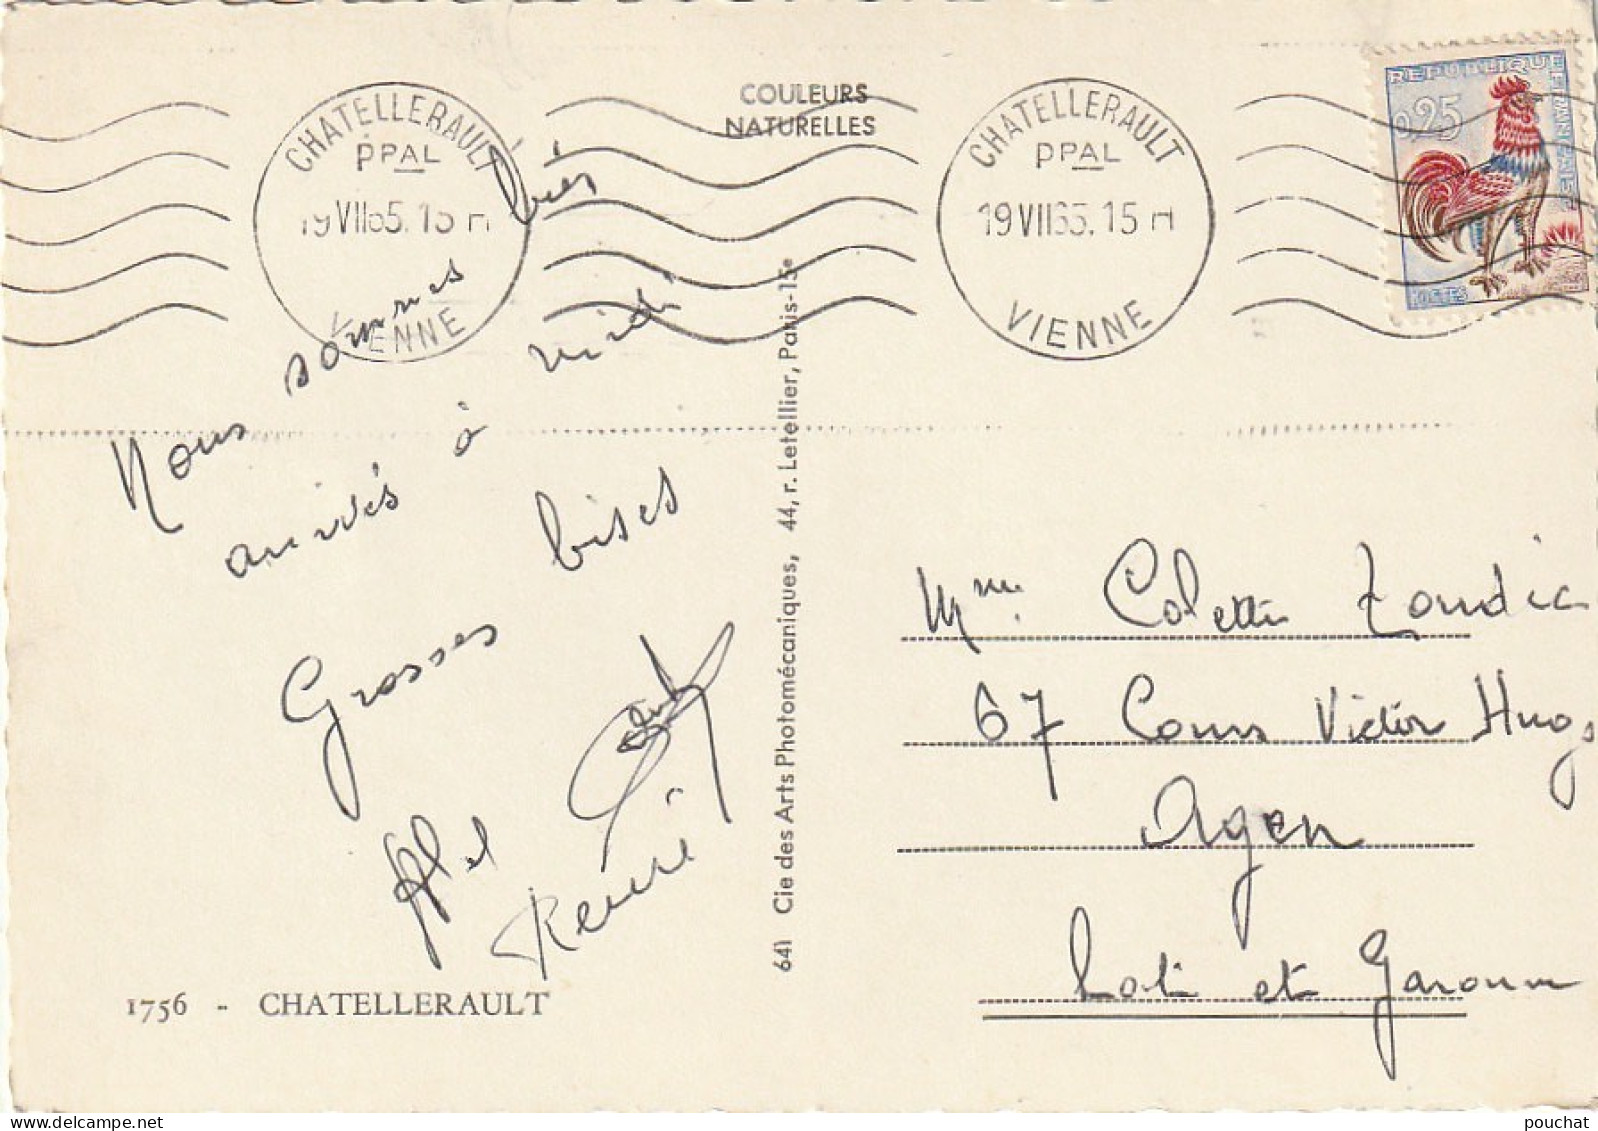 COULEURS
NATURELLES
CHATELLERAULT
PPAL
19 VII 65. 15 H
VIENNE
CHATELLERAULT
PPAL
19 VII 65. 15 H
VIENNE
REPUBLIQUE FRANÇAISE
0,25
POSTES
Nous sommes bien
arrivés à midi
Grosses bises
Renée
1756 - CHATELLERAULT
641 Cie des Arts Photomécaniques, 44, r. Letellier, Paris-15e
Mme Colette
67 Cours Victor Hugo
Agen
Lot et Garonne
pouchat